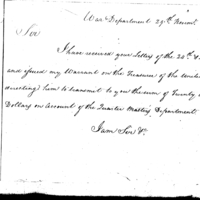 War Department 29th Novem.
Sir
I have received your Letters of the 20th
and issued my Warrant on the Treasurer of the United
directing him to transmit to you the sum of Twenty
Dollars on account of the Quarter Masters Department
I am Sir &c.